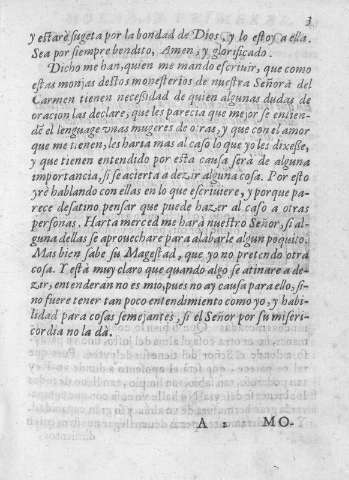 3
y estarè sugeta por la bondad de Dios, y lo estoy a ella.
Sea por siempre bendito, Amen, y glorificado.
Dicho me han, quien me mando escriuir, que como
estas monjas destos monesterios de nuestra Señora del
Carmen tienen necessidad de quien algunas dudas de
oracion las declare, que les parecia que mejor se entien-
dē el lenguage vnas mugeres de otras, y que con el amor
que me tienen, les haria mas al caso lo que yo les dixesse,
y que tienen entendido por esta causa serà de alguna
importancia, si se acierta a dezir alguna cosa. Por esto
yrè hablando con ellas en lo que escriuiere, y porque pa-
rece desatino pensar que puede hazer al caso a otras
personas. Harta merced me harà nuestro Señor, si al-
guna dellas se aprouechare para alabarle algun poquito.
Mas bien sabe su Magestad, que yo no pretendo otra
cosa. Y està muy claro que quando algo se atinare a de-
zir, entenderan no es mio, pues no ay causa para ello, si-
no fuere tener tan poco entendimiento como yo, y habi-
lidad para cosas semejantes, si el Señor por su miseri-
cordia no la dà.
A 2 MO-